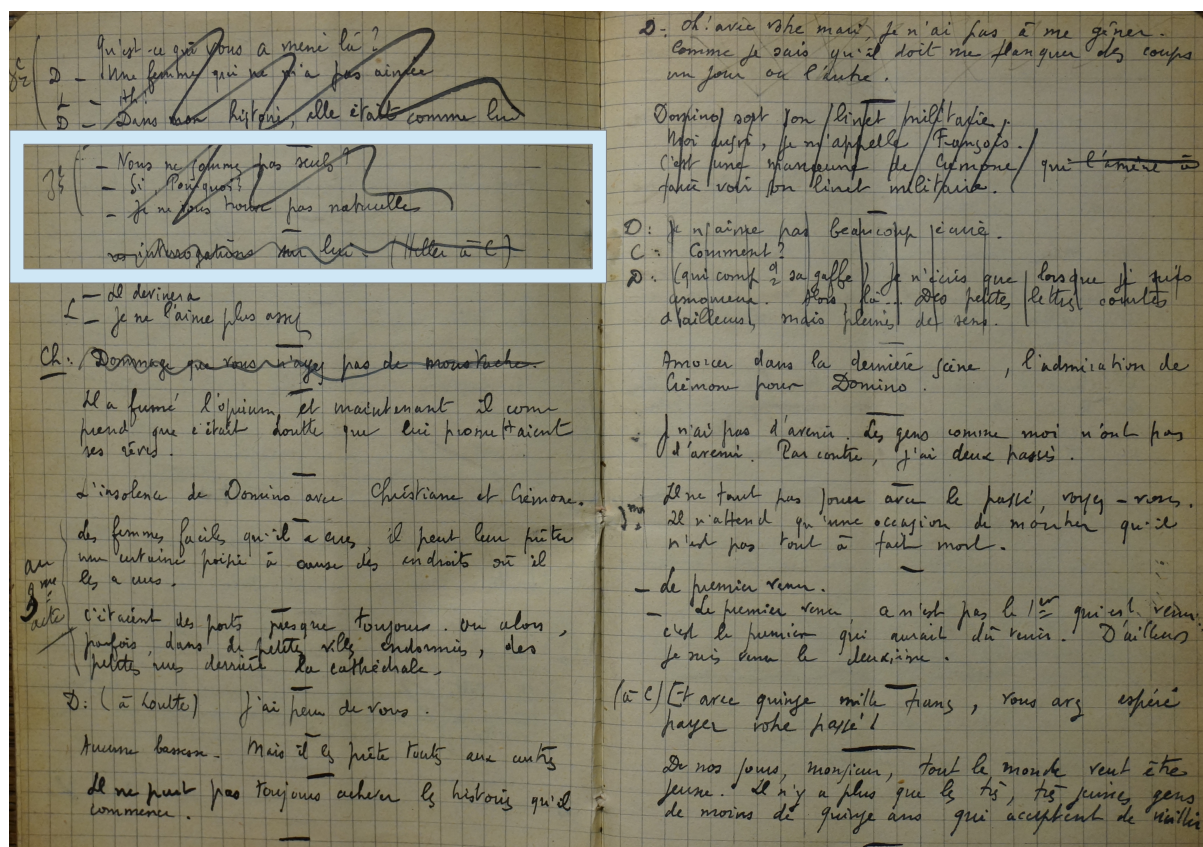 Qu'est-ce qui vous a mené là ?
D - Une femme qui ne m'a pas aimée
L - Ah!
D - Dans mon histoire, elle était comme lui
- Nous ne somme pas seuls ?
- Si, Pourquoi ?
- Je ne vous trouve pas naturelle
interrogations sur lui - ( à C)
- Il devinera
L - Je ne l'aime plus assez
Ch: Dommage que vous n'ayez pas de moustache.
Il a fumé l'opium, et maintenant il com
prend que c'était Loutte que lui promettaient
ses rêves.
L'insolence de Domino avec Christiane et Crémone.
au 3me acte
des femmes faciles qu'il a eues, il peut leur prêter
une certaine poésie à cause des endroits où il
les a eues.
c'étaient des ports presque toujours. ou alors,
parfois, dans de petites villes endormies, des
petites rues derrière la cathédrale.
D: (à Loutte) J'ai peur de vous.
Aucune bassesse. Mais il les prête toutes aux autres
Il ne peut pas toujours achever les histoires qu'il
commence.
D - Oh! avec votre mari, je n'ai pas à me gêner.
Comme je sais qu'il doit me flanquer des coups
un jour ou l'autre.
Domino sort son livret militaire.
Moi aussi, je m'appelle François.
C'est une manœuvre de Crémone qui l'amène à
faire voir son livret militaire.
D: Je n'aime pas beaucoup écrire.
C: Comment ?
D: (qui comp d sa gaffe) Je n'écris que lorsque je suis
amoureux. Alors, là... Des petites lettres courtes
d'ailleurs, mais pleines de sens.
Amorcer dans la dernière scène, l'admiration de
Crémone pour Domino.
Je n'ai pas d'avenir. Les gens comme moi n'ont pas
d'avenir. Par contre, j'ai deux passés.
3me
Il ne faut pas jouer avec le passé, voyez-vous.
Il n'attend qu'une occasion de montrer qu'il
n'est pas tout à fait mort.
- Le premier venu.
- Le premier venu, ce n'est pas le 1er qui est venu
c'est le premier qui aurait dû venir. D'ailleurs
je suis venu le deuxième.
(à C) Et avec quinze mille francs, vous avez espéré
payer votre passé !
De nos jours, monsieur, tout le monde veut être
jeune. Il n'y a plus que les très, très jeunes gens
de moins de quinze ans qui acceptent de vieillir